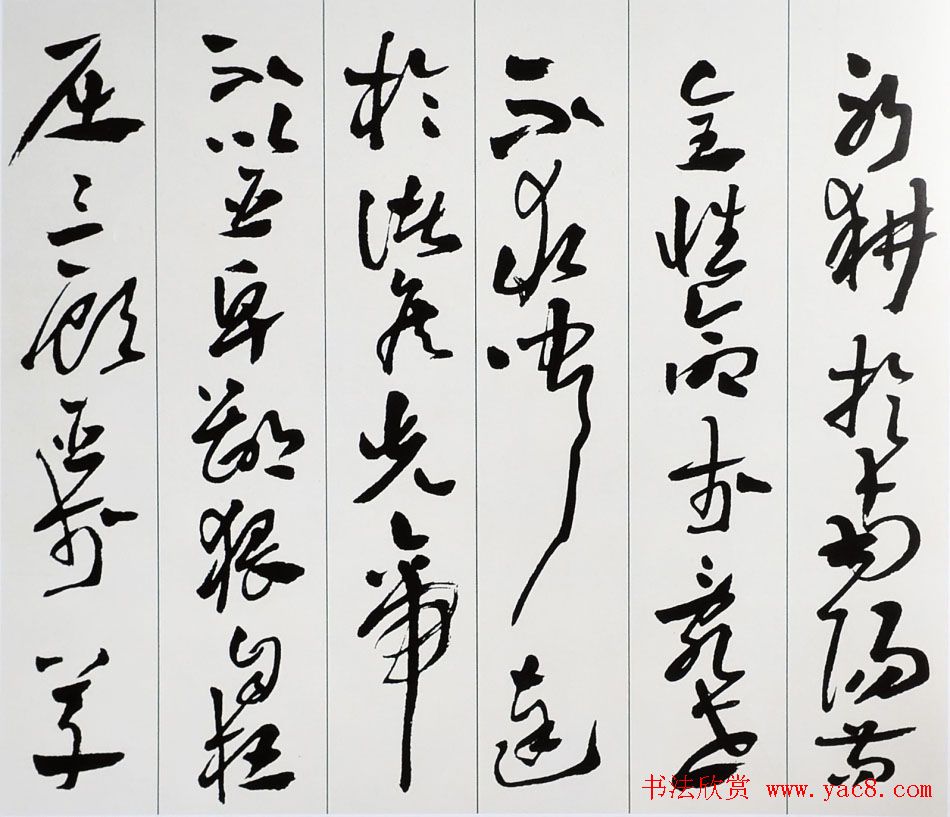 躬耕於南陽苟
全性命於亂世
不求聞達
於諸侯先帝
不以臣卑鄙猥自枉
屈三顧臣於草
书法欣赏 www.yac8.com